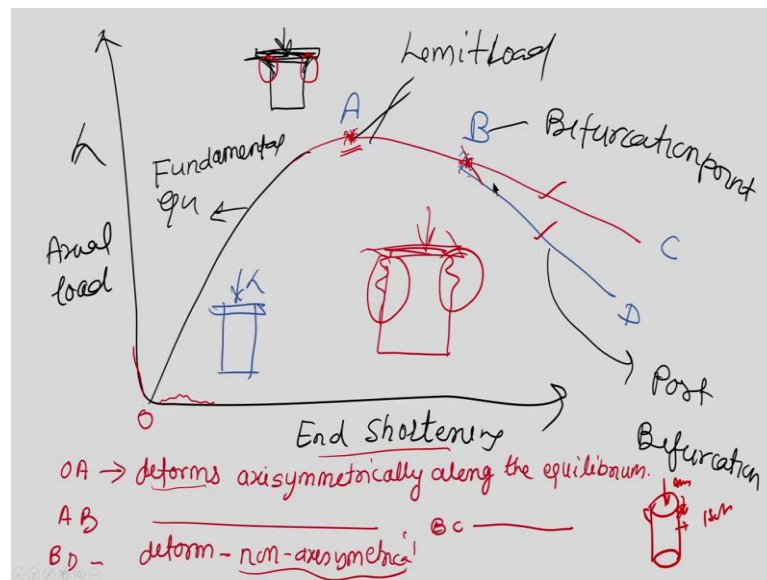 Limit Load
A
B - Bifurcation point
λ
Fundamental
equ
Axial
load
λ
C
D
Post
Bifurcation
O
End Shortening
OA → deforms axisymmetrically along the equilibrium.
AB BC
BD - deform - non-axisymmetrical